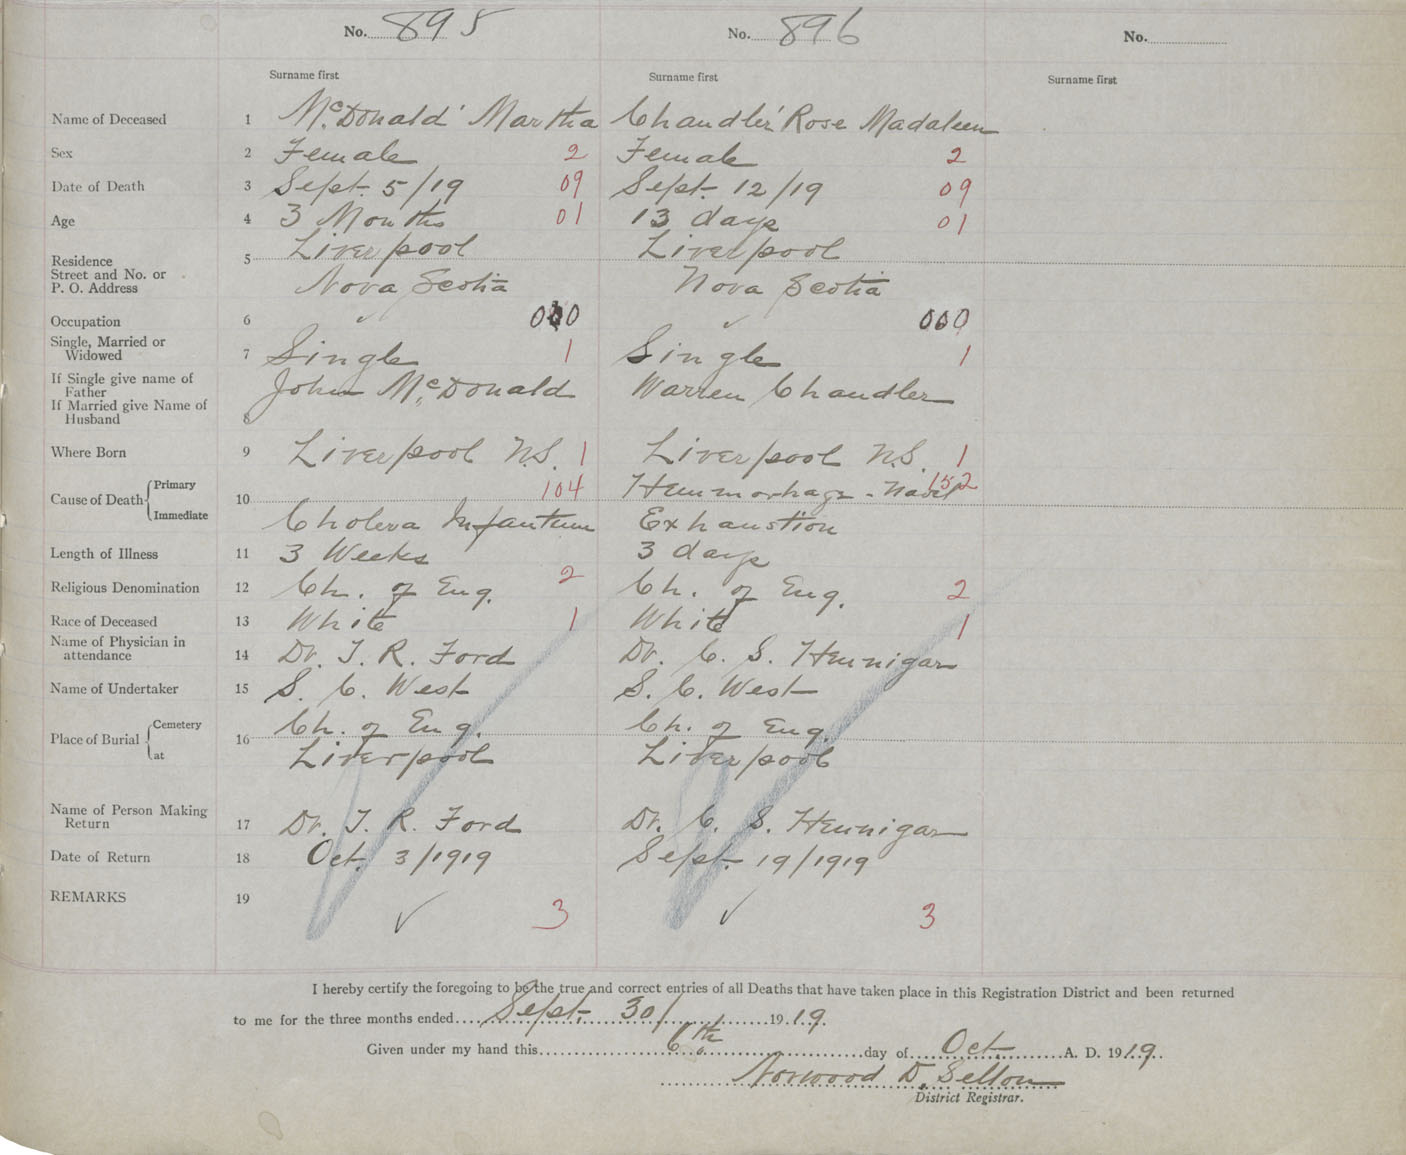 No. 895 No. 896 No.
Surname first Surname first Surname first
Name of Deceased 1 McDonald' Martha Chandler' Rose Madaleen
Sex 2 Female 2 Female 2
Date of Death 3 Sept. 5/19 09 Sept. 12/19 09
Age 4 3 Months 01 13 days 01
Residence 5 Liverpool Liverpool
Street and No. or
P. O. Address Nova Scotia Nova Scotia
Occupation 6 ✓ 000 ✓ 000
Single, Married or
Widowed 7 Single 1 Single 1
If Single give name of
Father John McDonald Warren Chandler
If Married give Name of
Husband 8
Where Born 9 Liverpool N.S. 1 Liverpool N.S. 1
Cause of Death Primary 10 104 Hemmorhage - Navel 152
Immediate Cholera Infantum Exhaustion
Length of Illness 11 3 Weeks 3 days
Religious Denomination 12 Ch. of Eng. 2 Ch. of Eng. 2
Race of Deceased 13 White 1 White 1
Name of Physician in
attendance 14 Dr. J. R. Ford Dr. C. S. Hennigar
Name of Undertaker 15 S. C. West S. C. West
Place of Burial Cemetery 16 Ch. of Eng. Ch. of Eng.
at Liverpool Liverpool
Name of Person Making
Return 17 Dr. J. R. Ford Dr. C. S. Hennigar
Date of Return 18 Oct. 3/1919 Sept. 19/1919
REMARKS 19 ✓ 3 ✓ 3
I hereby certify the foregoing to be the true and correct entries of all Deaths that have taken place in this Registration District and been returned
to me for the three months ended Sept. 30/ 1919.
Given under my hand this 6th day of Oct. A. D. 1919.
Norwood D. Sellon
District Registrar.